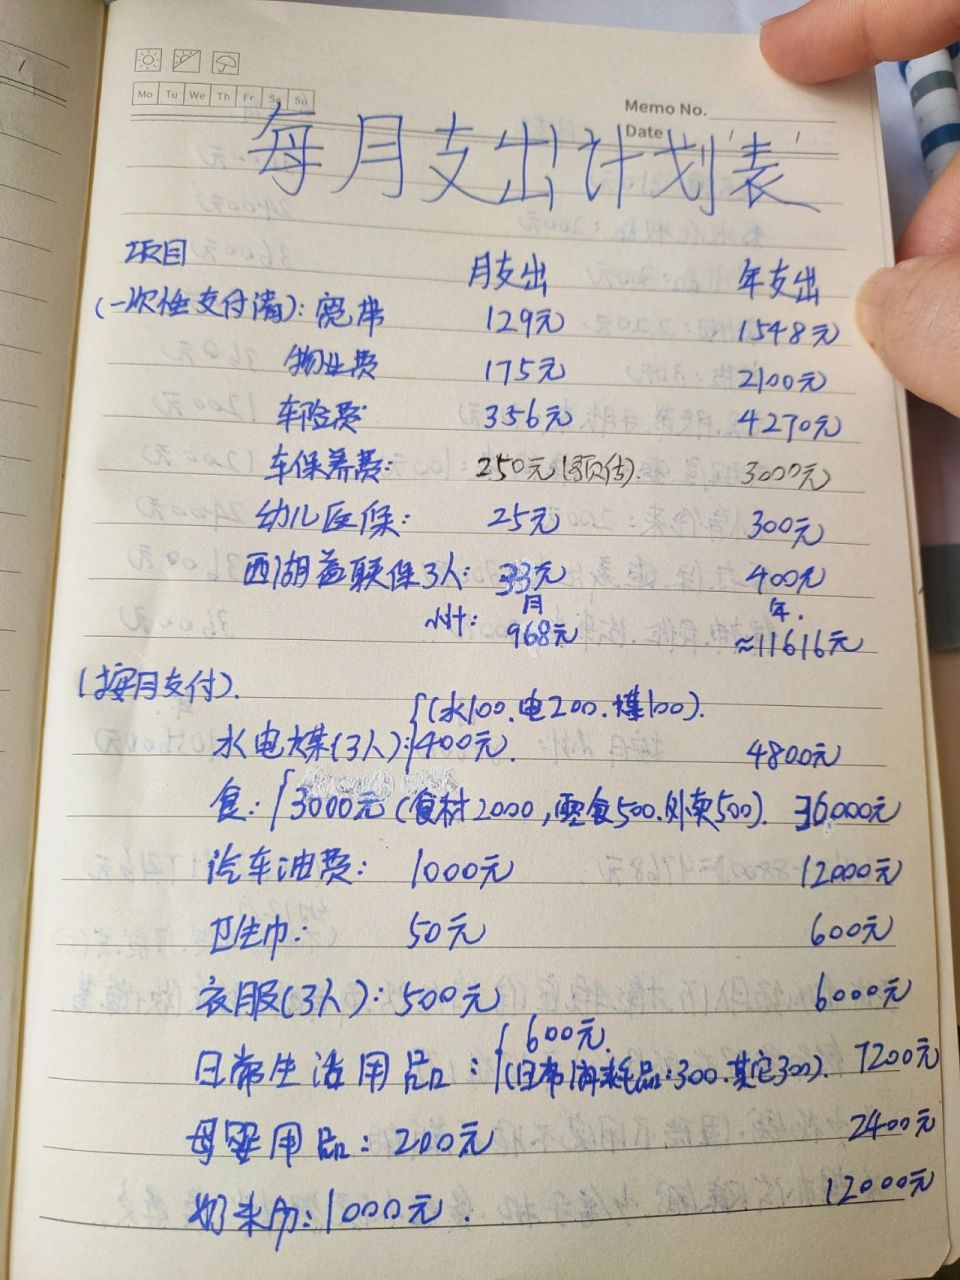 Mo Tu We Th Fr Sa Su
Memo No.
Date / /
每月支出计划表
项目 月支出 年支出
(一次性支付清): 宽带 129元 1548元
物业费 175元 2100元
车险费: 356元 4270元
车保养费: 250元(预估). 3000元
幼儿医保: 25元 300元
西湖益联保3人: 33元 400元
小计: 月 968元 年. ≈11616元
(按月支付).
(水100.电200.煤100).
水电煤(3人): 400元. 4800元
食: 3000元(食材2000,零食500.外卖500). 36000元
汽车油费: 1000元 12000元
卫生巾: 50元 600元
衣服(3人): 500元 6000元
600元.
日常生活用品: (日常消耗品:300.其它300). 7200元
母婴用品: 200元 2400元
奶米分: 1000元. 12000元